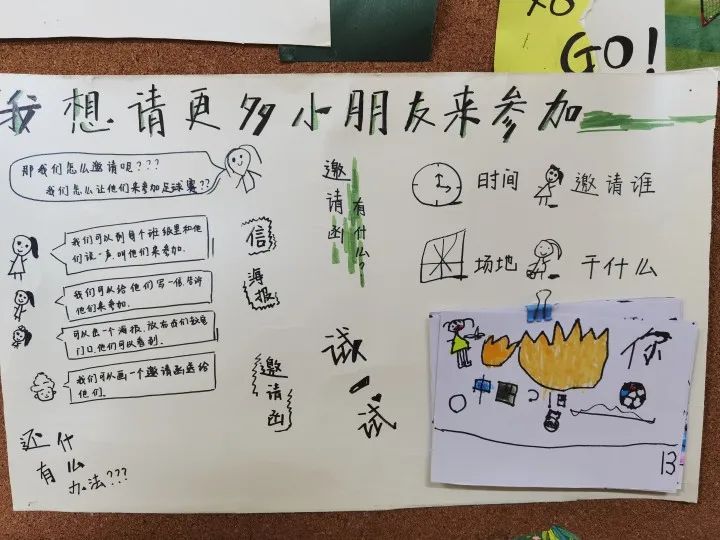 XO
GO!
我想请更多小朋友来参加
那我们怎么邀请呢????
我们怎么让他们来参加足球赛??
我们可以到每个班级里和他
们说一声,叫他们来参加.
我们可以给他们写一信,告诉
他们来参加.
可以画一个海报,放在我们教室
门口,他们可以看到.
我们可以画一个邀请函送给
他们.
还有什么办法???
信
海报
邀请函
邀请函
有什么?
试一试
时间
邀请谁
场地
干什么
你
中
13